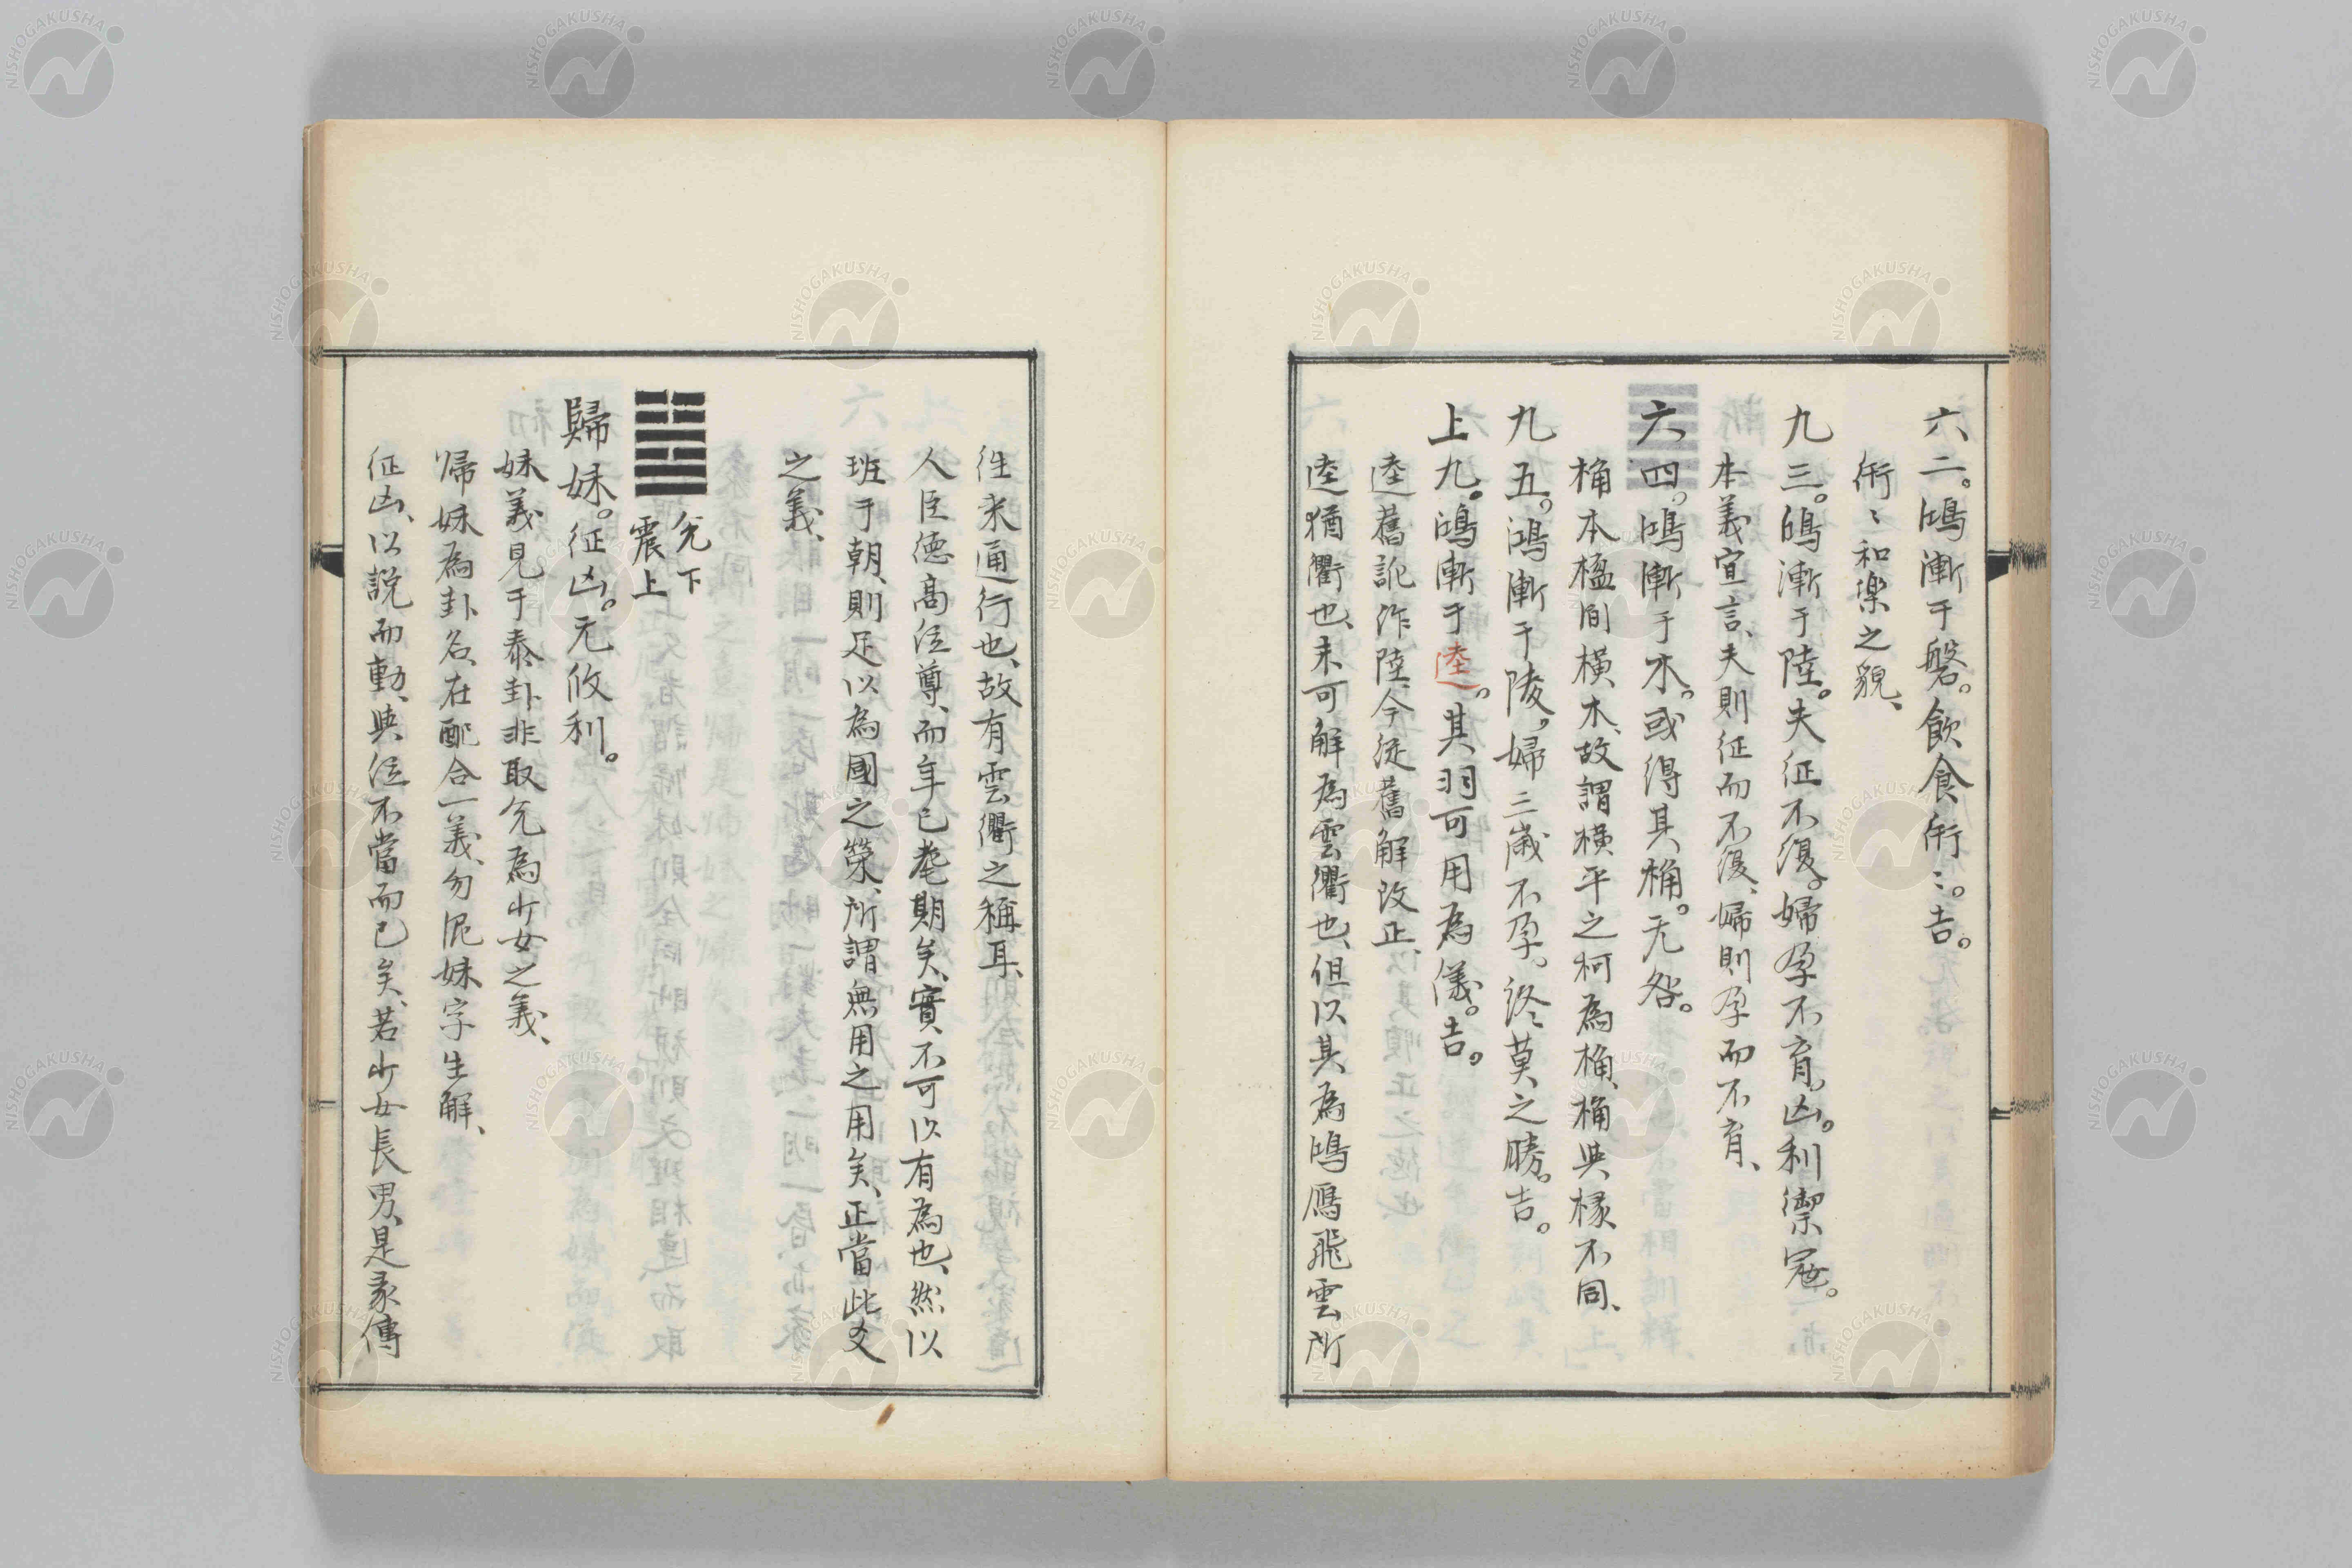 六二。鴻漸于磐。飲食衎〻。吉。
衎〻和樂之貌、
九三。鴻漸于陸。夫征不復。婦孕不育。凶。利禦寇。
本義宜言、夫則征而不復、婦則孕而不育、
六四。鴻漸于木。或得其桷。无咎。
桷本楹間橫木、故謂橫平之柯為桷、桷與椽不同、
九五。鴻漸于陵。婦三歲不孕。終莫之勝。吉。
上九。鴻漸于逵。其羽可用為儀。吉。
逵舊訛作陸、今從舊解改正、
逵猶衢也、未可解為雲衢也、但以其為鴻鴈飛雲所
往来通行也、故有雲衢之稱耳、
人臣德高位尊、而年已耄期矣、實不可以有為也、然以
班于朝、則足以為國之榮、所謂無用之用矣、正當此爻
之義、
兌下
震上
歸妹。征凶。无攸利。
妹義見于泰卦、非取兌為少女之義、
帰妹為卦名、在配合一義、勿泥妹字生解、
征凶、以説而動、與位不當而已矣、若少女長男、是彖傳